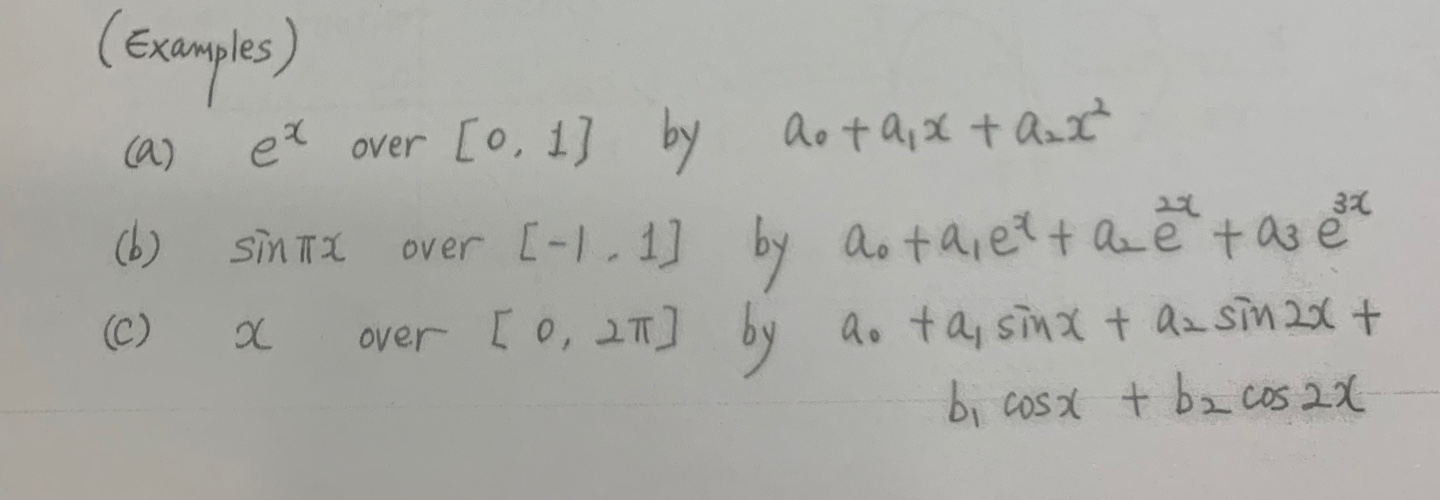 (Examples)
(a) eˣ over [0, 1] by a₀ + a₁x + a₂x²
(b) sin πx over [-1, 1] by a₀ + a₁eˣ + a₂e²ˣ + a₃e³ˣ
(c) x over [0, 2π] by a₀ + a₁ sin x + a₂ sin 2x +
b₁ cos x + b₂ cos 2x